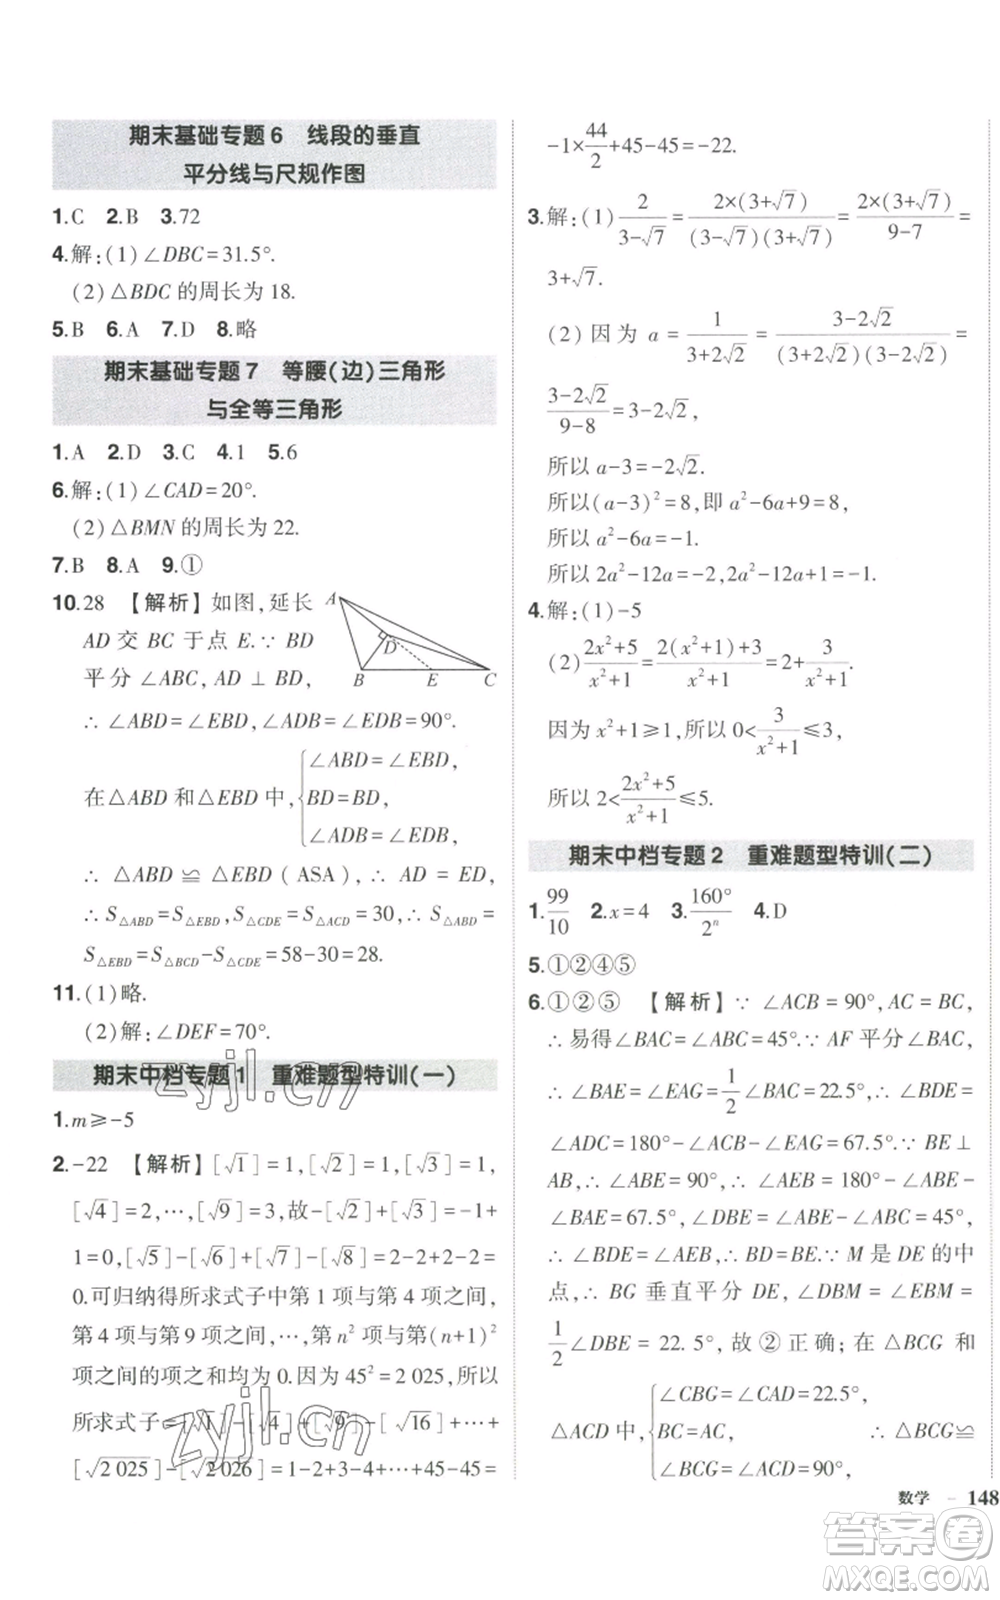 期末基础专题6 线段的垂直
平分线与尺规作图
1.C 2.B 3.72
4.解:(1)∠DBC=31.5°.
(2)△BDC 的周长为 18.
5.B 6.A 7.D 8.略
期末基础专题7 等腰(边)三角形
与全等三角形
1.A 2.D 3.C 4.1 5.6
6.解:(1)∠CAD=20°.
(2)△BMN 的周长为 22.
7.B 8.A 9.①
10.28 【解析】如图,延长
AD 交 BC 于点 E.∵ BD
平分 ∠ABC,AD ⊥ BD,
A
D
B E C
∴ ∠ABD=∠EBD,∠ADB=∠EDB=90°.
在△ABD 和△EBD 中,{∠ABD=∠EBD,
BD=BD,
∠ADB=∠EDB,
∴ △ABD ≌ △EBD (ASA),∴ AD = ED,
∴ S△ABD=S△EBD,S△CDE=S△ACD=30,∴
S△EBD=S△BCD-S△CDE=58-30=28.
11.(1)略.
(2)解:∠DEF=70°.
期末中档专题1 重难题型特训(一)
1.m≥-5
2.-22 【解析】[√1]=1,[√2]=1,[√3]=1,
[√4]=2,…,[√9]=3,故-[√2]+[√3]=-1+
1=0,[√5]-[√6]+[√7]-[√8]=2-2+2-2=
0.可归纳得所求式子中第 1 项与第 4 项之间,
第 4 项与第 9 项之间,…,第 n² 项与第(n+1)²
项之间的项之和均为 0.因为 45²=2 025,所以
所求式子=[√1]-[√4]+[√9]-[√16]+…+
[√2 025]-[√2 026]=1-2+3-4+…+45-45=
-1×44/2+45-45=-22.
3.解:(1)2/(3-√7)=2×(3+√7)/((3-√7)(3+√7))=2×(3+√7)/(9-7)=
3+√7.
(2)因为 a=1/(3+2√2)=(3-2√2)/((3+2√2)(3-2√2))=
(3-2√2)/(9-8)=3-2√2,
所以 a-3=-2√2.
所以(a-3)²=8,即 a²-6a+9=8,
所以 a²-6a=-1.
所以 2a²-12a=-2,2a²-12a+1=-1.
4.解:(1)-5
(2)(2x²+5)/(x²+1)=(2(x²+1)+3)/(x²+1)=2+3/(x²+1).
因为 x²+1≥1,所以 0<3/(x²+1)≤3,
所以 2<(2x²+5)/(x²+1)≤5.
期末中档专题2 重难题型特训(二)
1.99/10 2.x=4 3.160°/2ⁿ 4.D
5.①②④⑤
6.①②⑤ 【解析】∵ ∠ACB=90°,AC=BC,
∴ 易得∠BAC=∠ABC=45°.∵ AF 平分∠BAC,
∴ ∠BAE=∠EAG=1/2∠BAC=22.5°,∴
∠ADC=180°-∠ACB-∠EAG=67.5°.∵ BE⊥
AD,∴ ∠ABE=90°,∴ ∠ABE=180°-∠ABE-
∠BAE=67.5°,∠DBE=∠ABE-∠ABC=45°,
∴ ∠BDE=∠AEB,∴ BD=BE.∵ M 是 DE 的中
点,∴ BG 垂直平分 DE,∠DBM=∠EBM=
1/2∠DBE=22.5°,故②正确;在 △BCG 和
△ACD 中,{∠CBG=∠CAD=22.5°,
BC=AC,
∠BCG=∠ACD=90°,
∴ △BCG≌
数学 - 148
zyjl.cn
zyjl.cn
答案圈
MXQE.COM